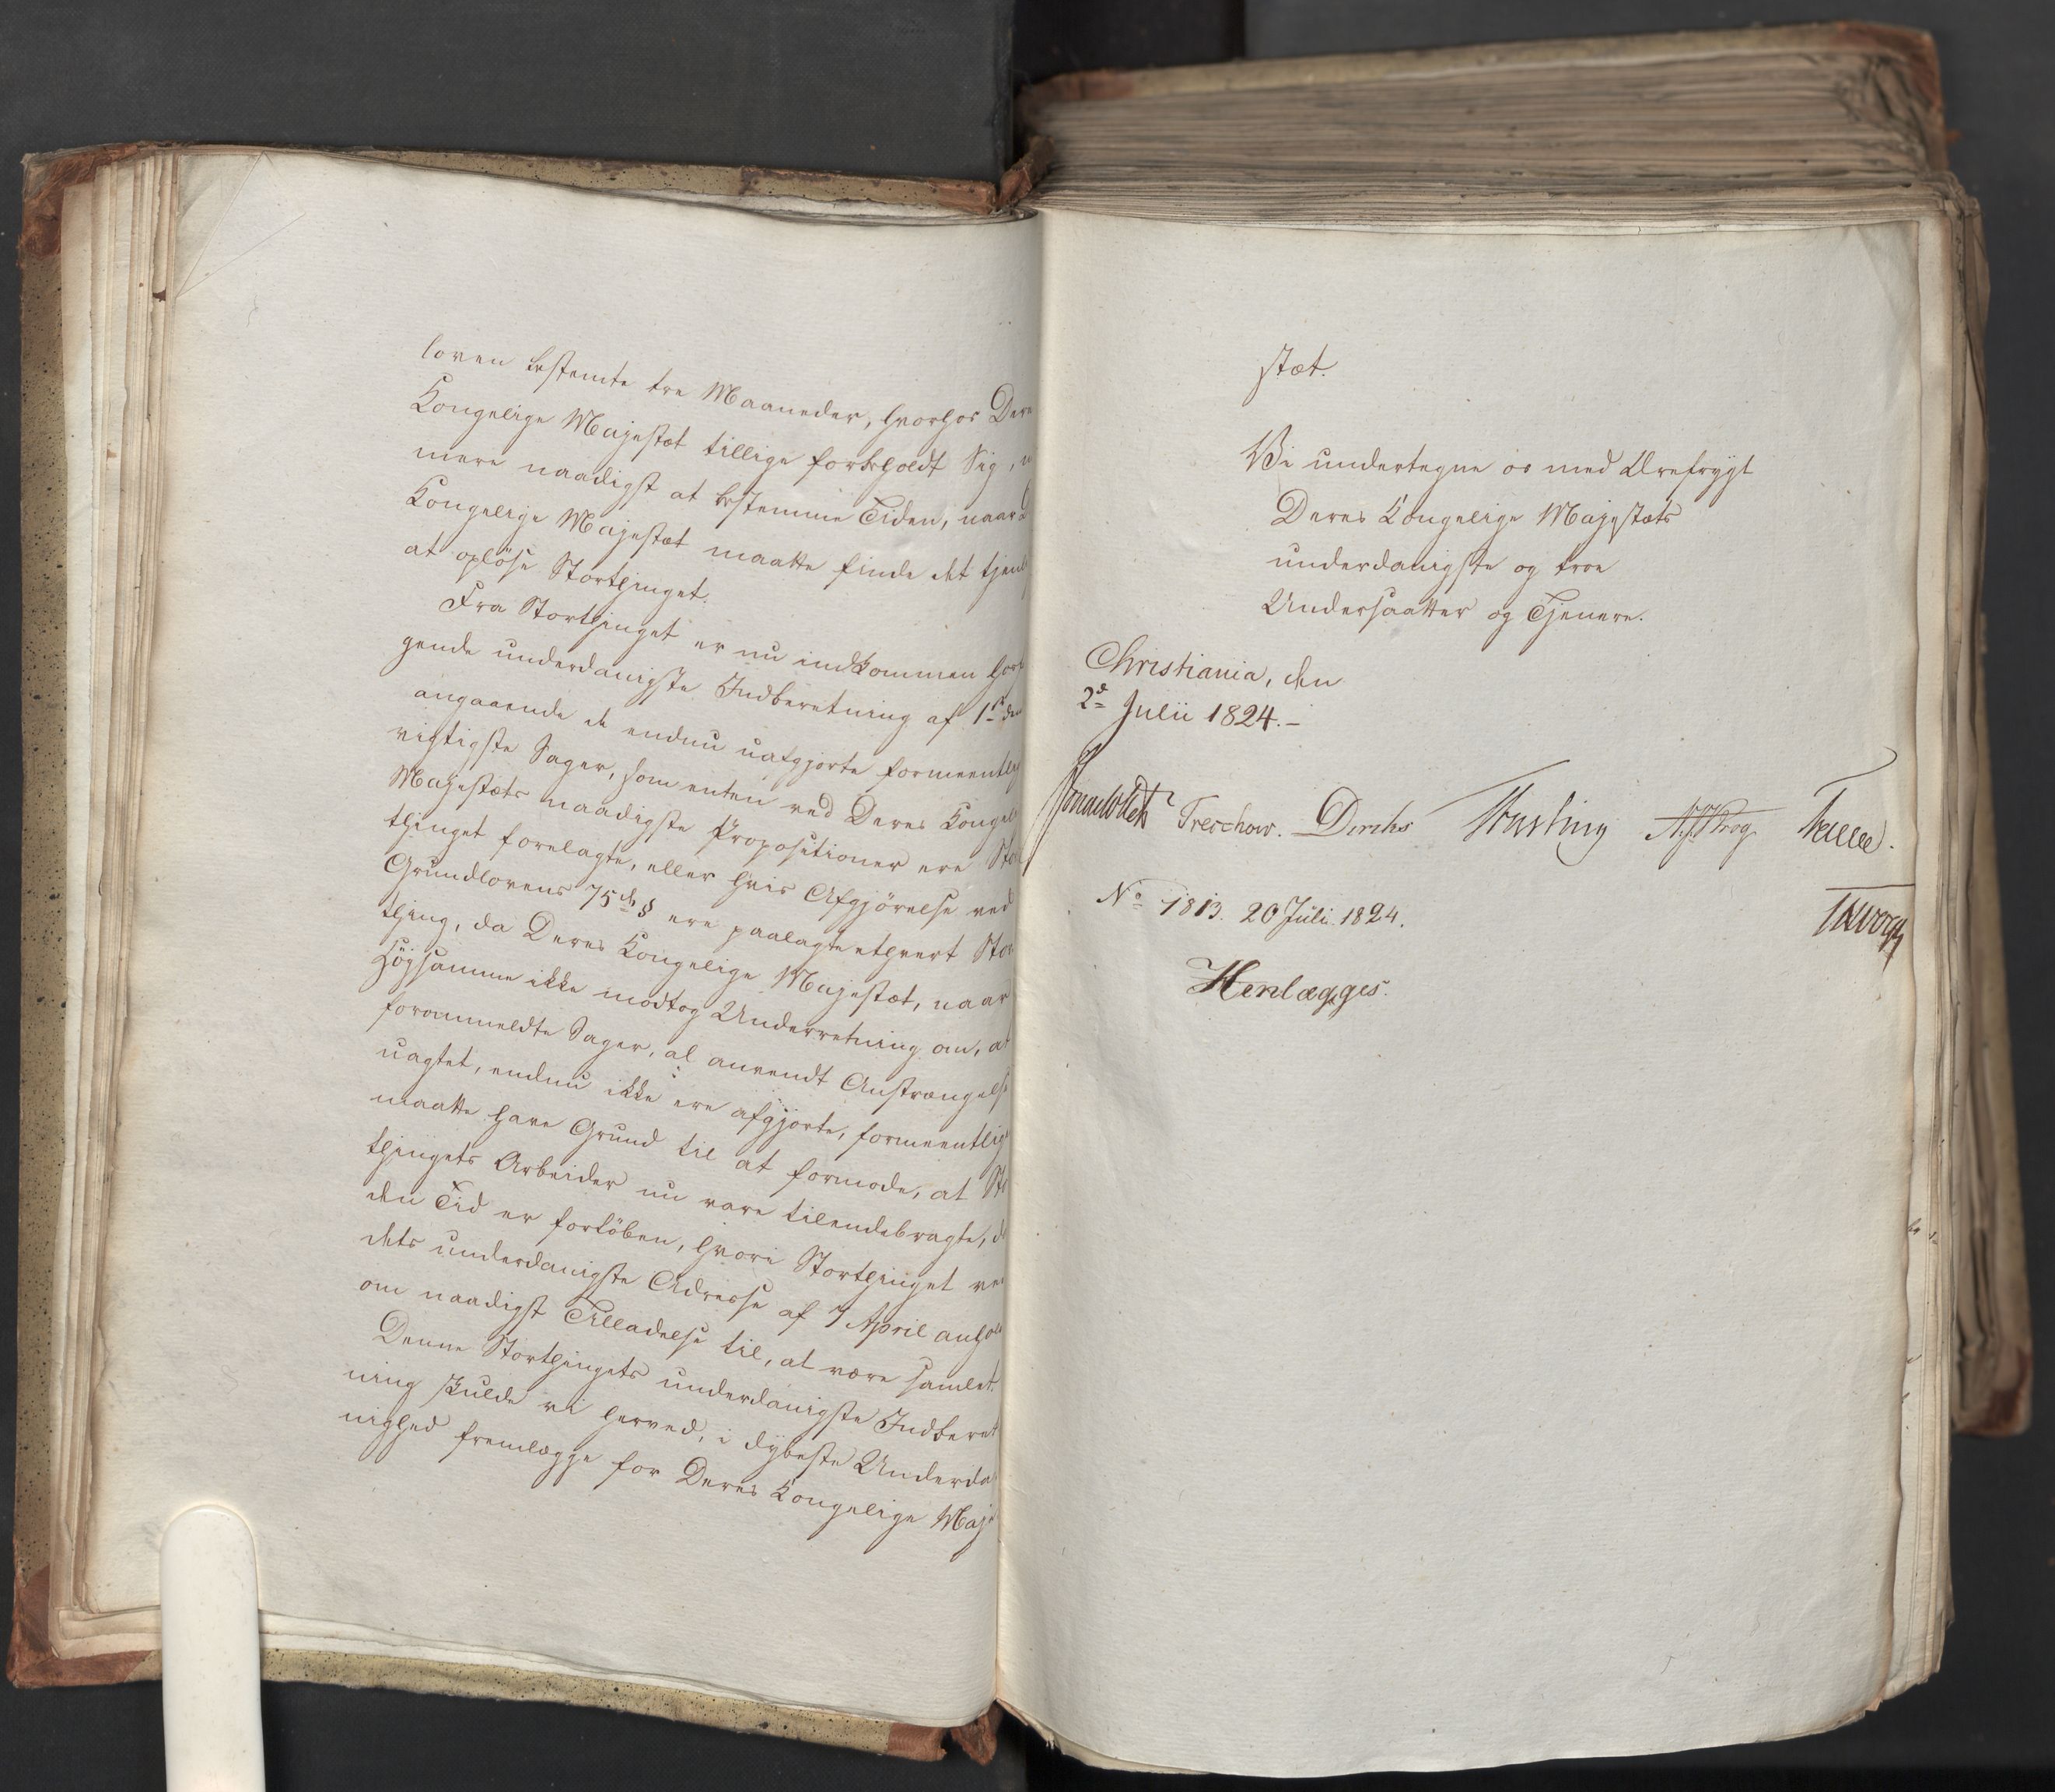 loven bestemte tre Maaneder, hvorhos Dere
Kongelige Majestæt tillige forbeholdt Sig,
mere naadigst at bestemme Tiden, naar
Kongelige Majestæt maatte finde det tjenl
at opløse Storthinget.
Fra Storthinget er nu indkommen hos
gende underdanigste Indberetning af 1ste den
angaaende de endnu uafgjorte formeentlig
vigtigste Sager, som enten ved Deres Kongel
Majestæts naadigste Propositioner ere Stor
thinget forelagte, eller hvis Afgjörelse ved
Grundlovens 75de § ere paalagte ethvert Stor
thing, da Deres Kongelige Majestæt, naar
Höjsamme ikke modtog Underretning om, at
forommeldte Sager, al anvendt Anstrængelse
uagtet, endnu ikke ere afgjorte, formeentlig
maatte have Grund til at formode, at Sto
thingets Arbeider nu vare tilendebragte, d
den Tid er forlöben, hvori Storthinget ve
dets underdanigste Adresse af 7 April anhol
om naadigst Tilladelse til, at være samlet.
Denne Storthingets underdanigste Indberet
ning skulde vi herved, i dybeste Underda
nighed fremlægge for Deres Kongelige Maje
stæt.
Vi undertegne os med Ærefrygt
Deres Kongelige Majestæts
underdanigste og troe
Undersaatter og Tjenere.
Christiania, den
2d Julii 1824.-
Treschow. Diriks Fasting Krog
No 1813. 20 Juli 1824.
Henlægges.